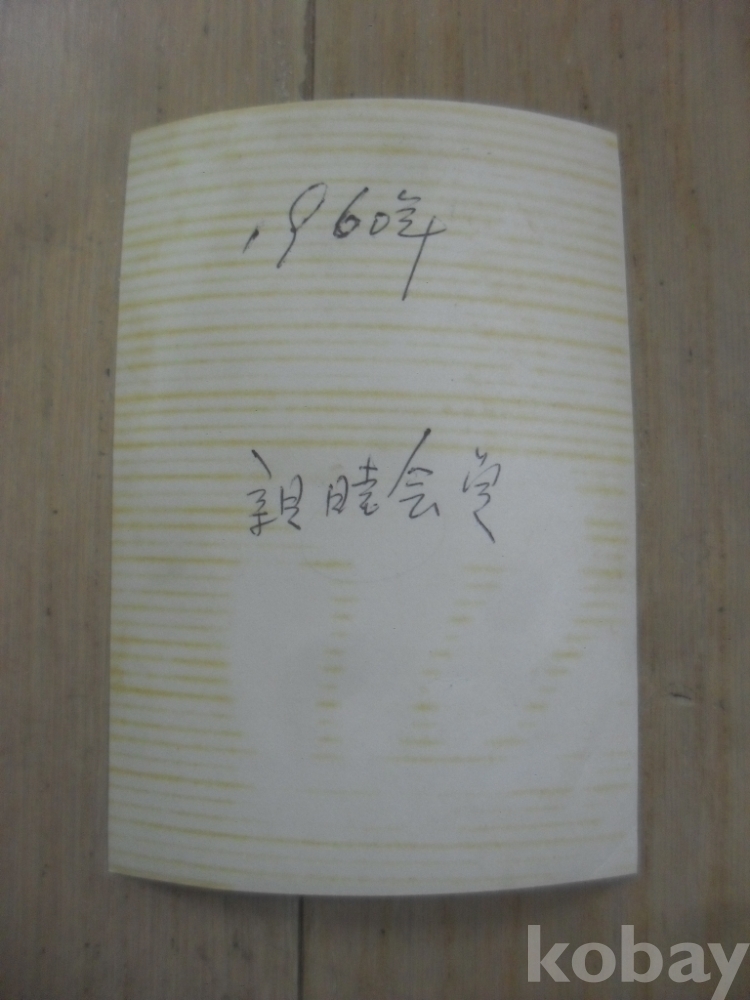 1960年
親睦会員
kobay